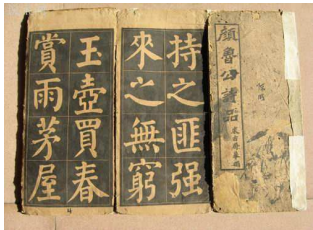 顏魯公詩品
持之匪强
來之無窮
玉壺買春
賞雨茅屋